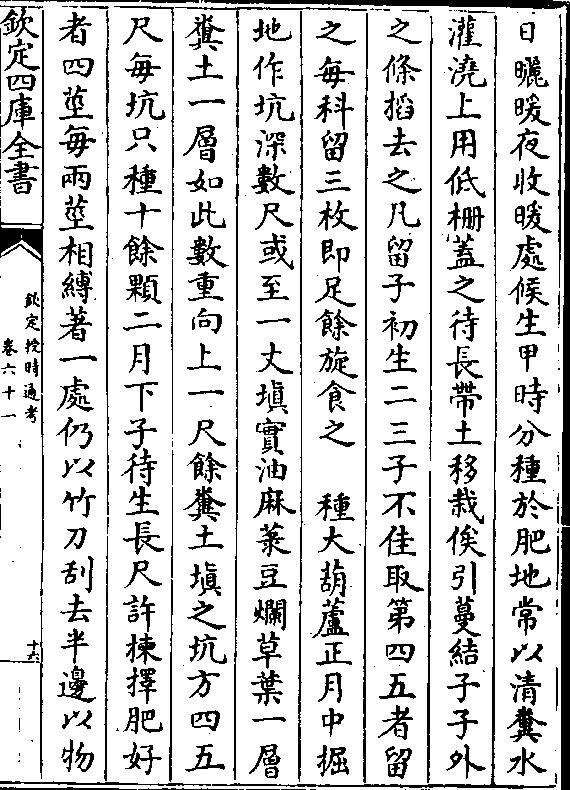 日曬暖夜收暖處候生甲時分種於肥地常以清糞水
灌澆上用低棚蓋之待長帶土移栽俟引蔓結子子外
之條搯去之凡留子初生二三子不佳取第四五者留
之每科留三枚即足餘旋食之　種大葫蘆正月中掘
地作坑深數尺或至一丈塡實油麻菉豆爛草葉一層
糞土一層如此數重向上一尺餘糞土塡之坑方四五
尺每坑只種十餘顆二月下子待生長尺許揀擇肥好
者四莖每兩莖相縛著一處仍以竹刀刮去半邊以物
欽定四庫全書
欽定授時通考
卷六十一
十六